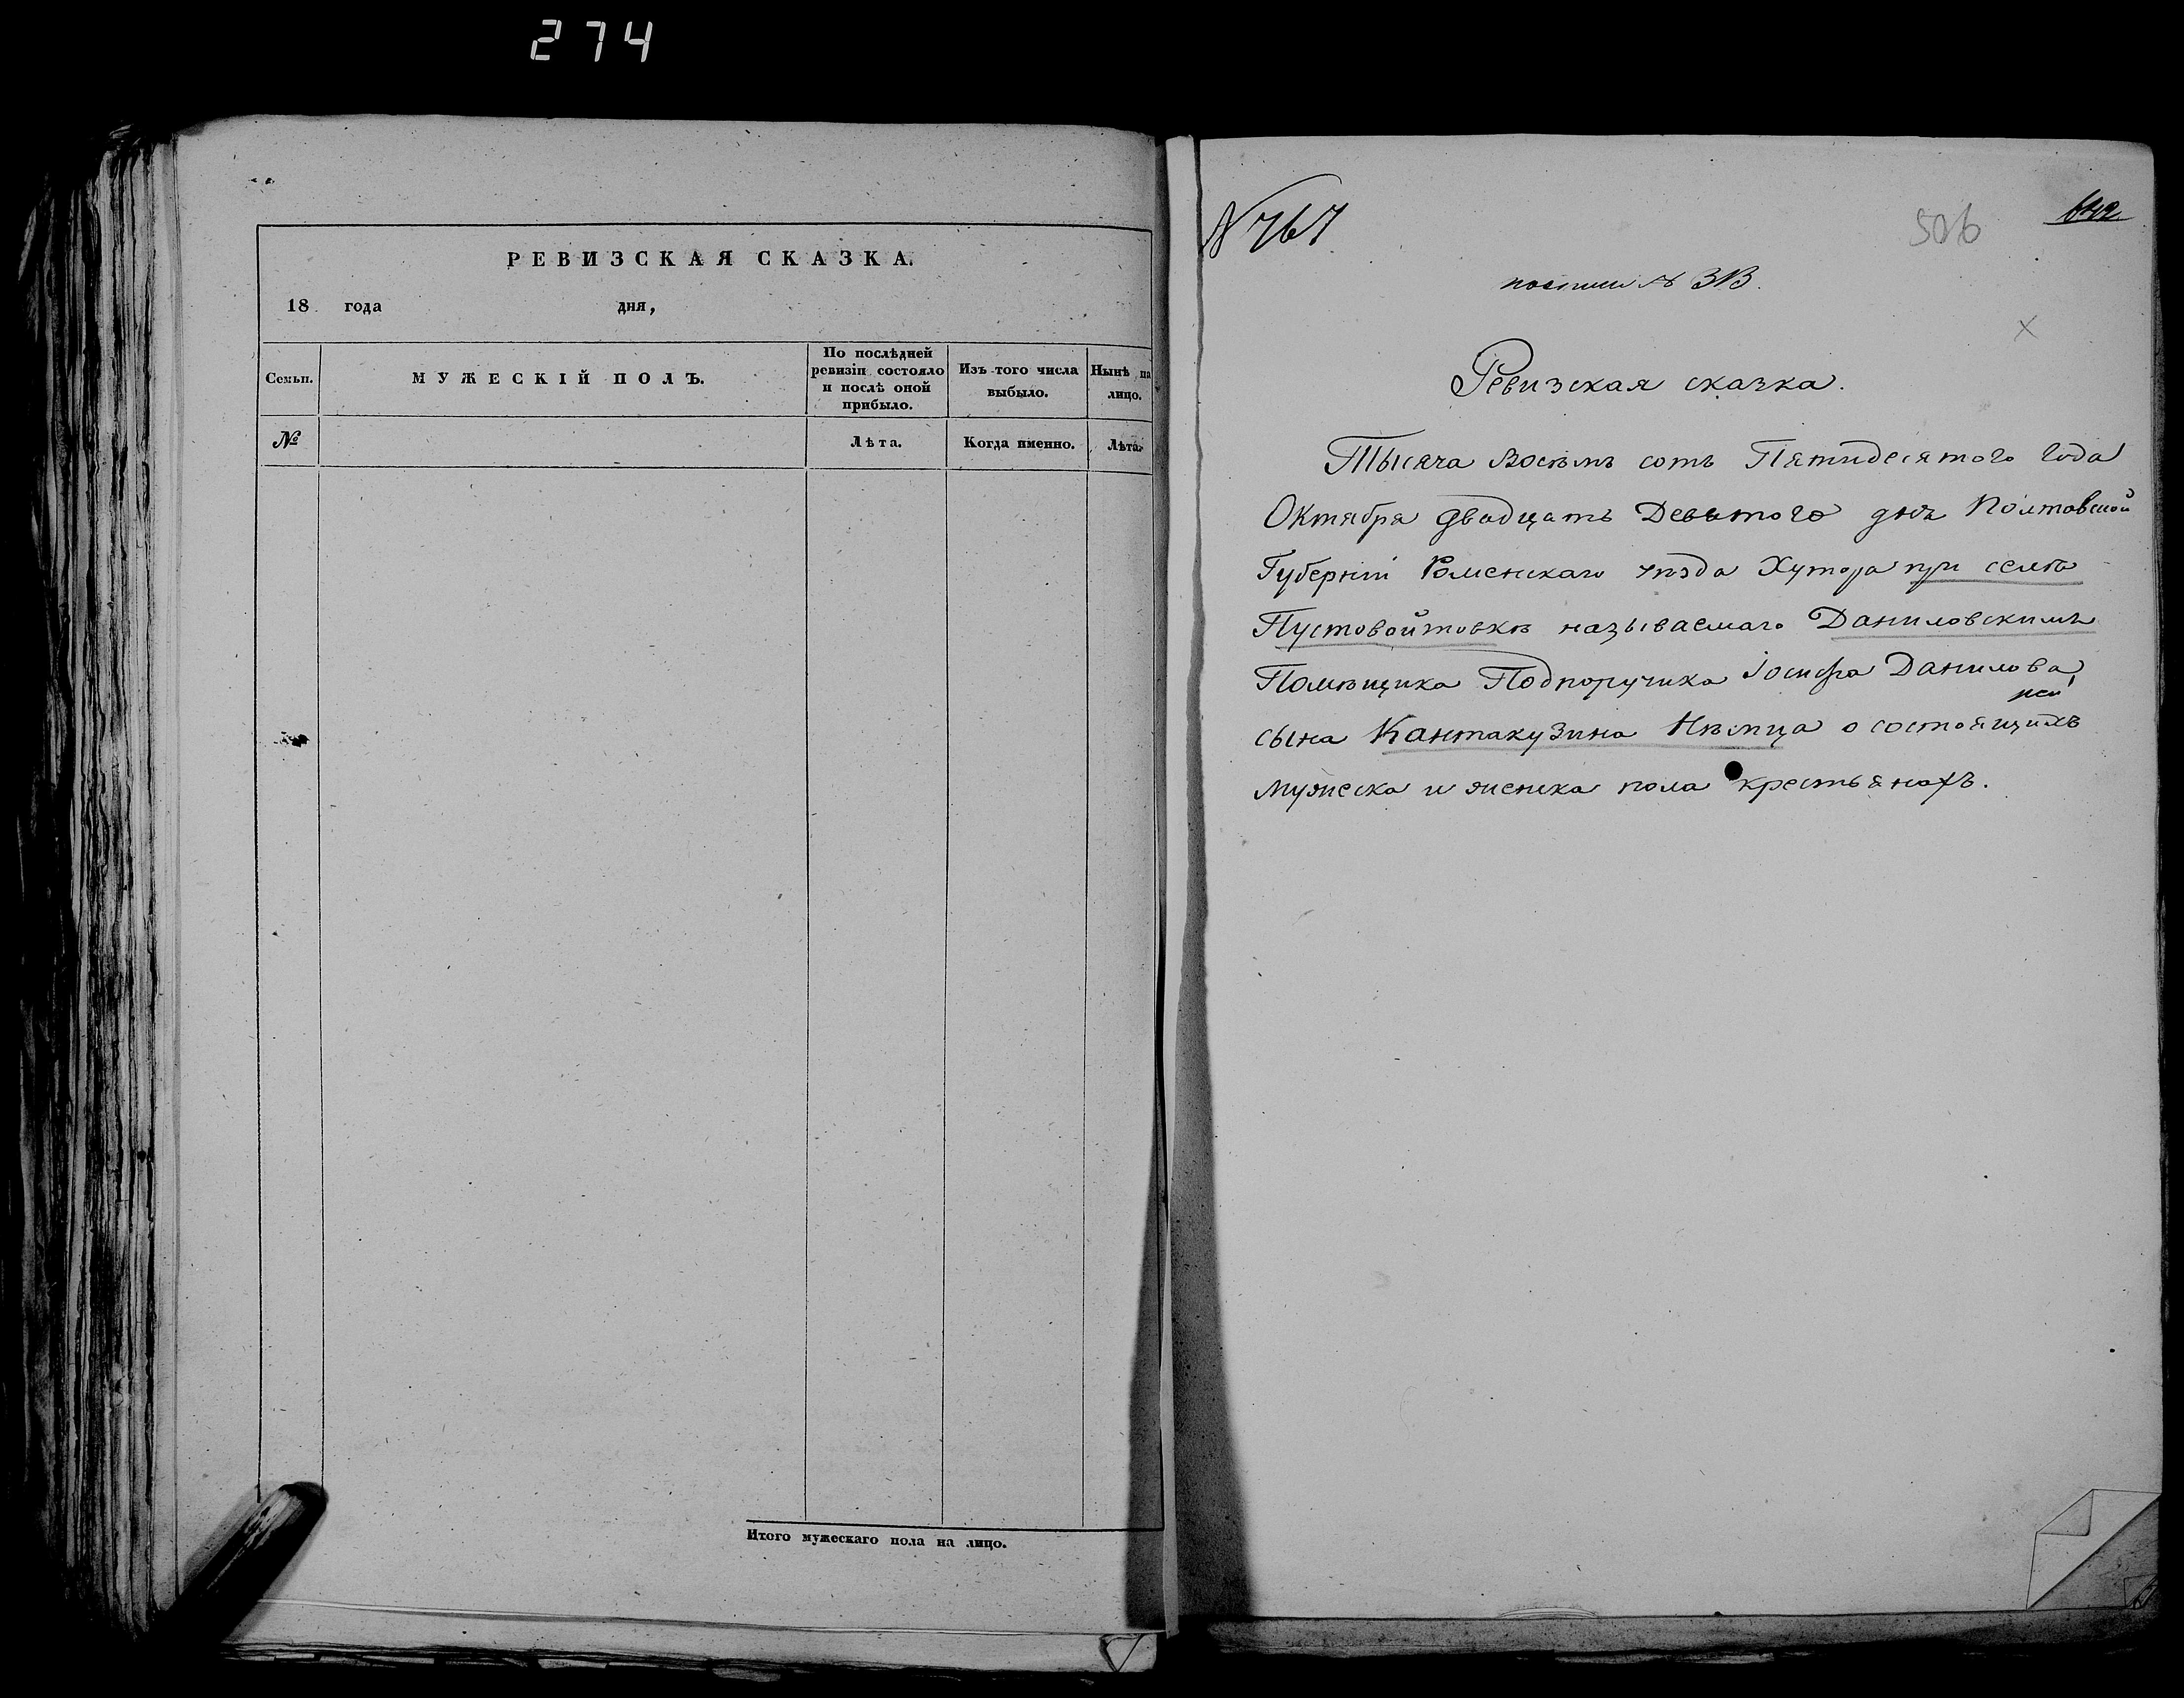 274
РЕВИЗСКАЯ СКАЗКА.
18 года дня,
Семьи.
МУЖЕСКІЙ ПОЛЪ.
По послѣдней
ревизіи состояло
и послѣ оной
прибыло.
Изъ того числа
выбыло.
Нынѣ на
лицо.
№
Лѣта.
Когда именно.
Лѣта.
Итого мужескаго пола на лицо.
N 767
506
Ревизская сказка.
Тысяча Восемь сотъ Пятидесятого Года
Октября двадцать Девятого дня Полтавской
Губерніи Роменскаго уѣзда Хутора при селѣ
Пустовойтовкѣ называемаго Даниловскимъ
Помѣщика Подпоручика Іосифа Данилова
сына Кантакузина Нѣмца о состоящихъ
мужеска и женска пола крестьянахъ.